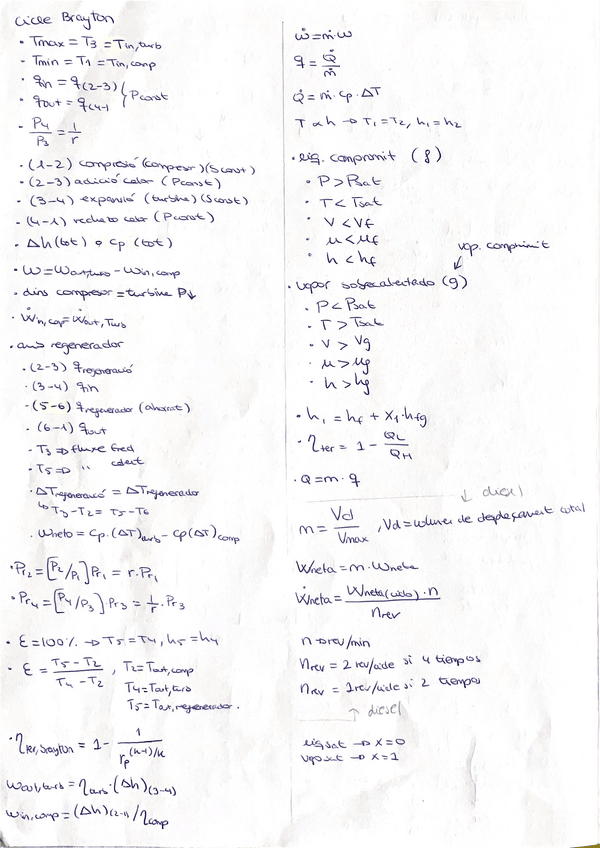 Cicle Brayton
· Tmax = T3 = Tin,turb
· Tmin = T1 = Tin,comp
· qin = q(2-3)
· qout = q(4-1 } Pconst
· P4/P3 = 1/r
· (1-2) compresió (compresor) (Sconst)
· (2-3) adició calor (Pconst)
· (3-4) expansió (turbina) (Sconst)
· (4-1) rechazo calor (Pconst)
· Δh(tot) o cp (tot)
· w = wout,turb - win,comp
· dins compresor = turbine P↓
· Ẇin,comp = Ẇout,Turb
· amb regenerador
· (2-3) qregeneració
· (3-4) qin
· (5-6) qregenerador (ahorrat)
· (6-1) qout
· T3 ⇒ fluxe fred
· T5 ⇒ " calent
· ΔTregeneració = ΔTregenerador
↳ T3 - T2 = T5 - T6
· wneto = cp·(ΔT)turb - cp(ΔT)comp
· Pr2 = [P2/P1] Pr1 = r·Pr1
· Pr4 = [P4/P3]·Pr3 = 1/r·Pr3
· ε = 100% → T5 = T4, h5 = h4
· ε = T5 - T2 / T4 - T2 , T2 = Tout,comp
T4 = Tout,turb
T5 = Tout,regenerador.
· ηter,brayton = 1 - 1/rp^(k-1)/k
wout,turb = ηturb·(Δh)(3-4)
win,comp = (Δh)(2-1)/ηcomp
ẇ = ṁ·w
q = Q̇/ṁ
Q̇ = ṁ·cp·ΔT
T ∝ h → T1 = T2, h1 = h2
· liq. comprimit (f)
· P > Psat
· T < Tsat
· V < Vf
· μ < μf
· h < hf
vap. comprimit
↙
· vapor sobrecalentado (g)
· P < Psat
· T > Tsat
· V > Vg
· μ > μg
· h > hg
· h1 = hf + x1·hfg
· ηter = 1 - QL/QH
· Q = m·q
↓ diesel
m = Vd/Vmax , Vd = volumen de desplaçament total
Wneta = m·wneta
Ẇneta = Wneta(ciclo)·n / nrev
n → rev/min
nrev = 2 rev/cicle si 4 tiempos
nrev = 1 rev/cicle si 2 tiempos
↑ diesel
liq sat → x = 0
vap sat → x = 1